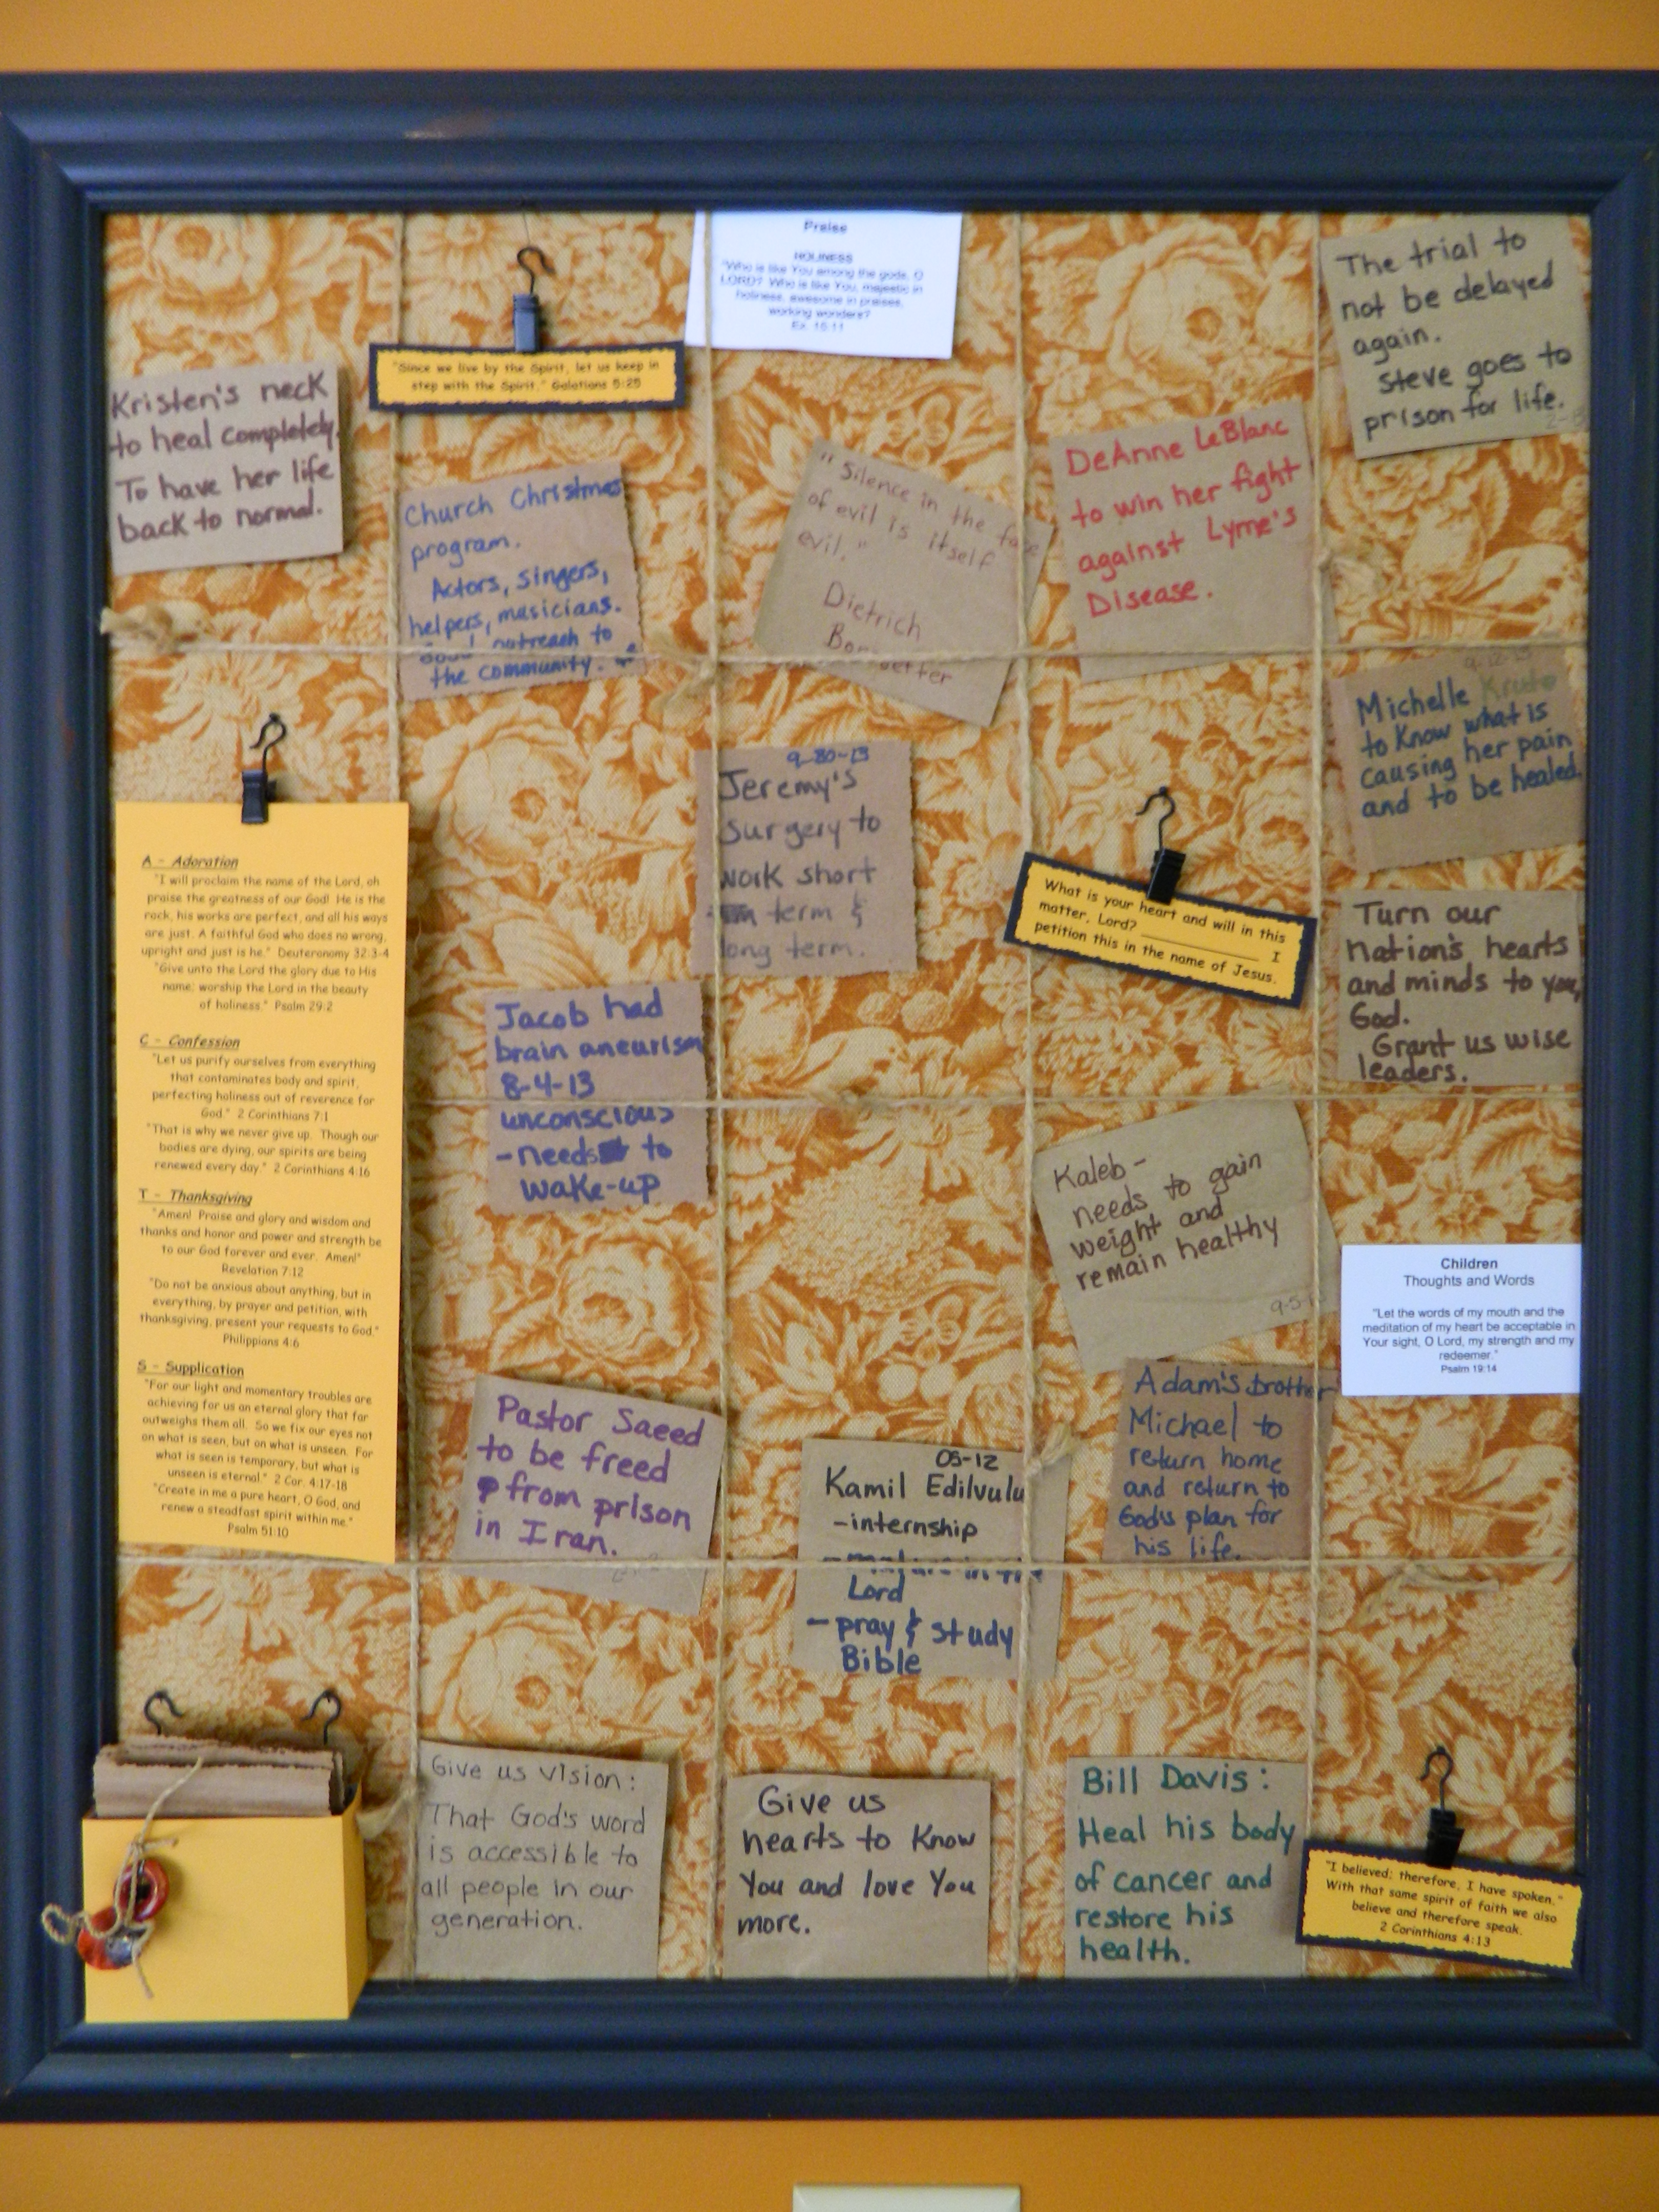 Praise
HOLINESS
"Who is like You among the gods, O
LORD? Who is like You, majestic in
holiness, awesome in praises,
working wonders?
Ex. 15:11
The trial to
not be delayed
again.
Steve goes to
prison for life.
"Since we live by the Spirit, let us keep in
step with the Spirit." Galatians 5:25
Kristen's neck
to heal completely.
To have her life
back to normal.
Church Christmas
program.
Actors, singers,
helpers, musicians.
outreach to
the community.
"Silence in the face
of evil is itself
evil."
Dietrich
DeAnne LeBlanc
to win her fight
against Lyme's
Disease.
9-12-13
Michelle
to Know what is
causing her pain
and to be healed.
9-30-13
Jeremy's
surgery to
work short
term &
long term.
What is your heart and will in this
matter, Lord? __________ I
petition this in the name of Jesus.
Turn our
nation's hearts
and minds to you,
God.
Grant us wise
leaders.
A - Adoration
"I will proclaim the name of the Lord, oh
praise the greatness of our God! He is the
rock, his works are perfect, and all his ways
are just. A faithful God who does no wrong,
upright and just is he." Deuteronomy 32:3-4
"Give unto the Lord the glory due to His
name; worship the Lord in the beauty
of holiness." Psalm 29:2
C - Confession
"Let us purify ourselves from everything
that contaminates body and spirit,
perfecting holiness out of reverence for
God." 2 Corinthians 7:1
"That is why we never give up. Though our
bodies are dying, our spirits are being
renewed every day." 2 Corinthians 4:16
T - Thanksgiving
"Amen! Praise and glory and wisdom and
thanks and honor and power and strength be
to our God forever and ever. Amen!"
Revelation 7:12
"Do not be anxious about anything, but in
everything, by prayer and petition, with
thanksgiving, present your requests to God."
Philippians 4:6
S - Supplication
"For our light and momentary troubles are
achieving for us an eternal glory that far
outweighs them all. So we fix our eyes not
on what is seen, but on what is unseen. For
what is seen is temporary, but what is
unseen is eternal." 2 Cor. 4:17-18
"Create in me a pure heart, O God, and
renew a steadfast spirit within me."
Psalm 51:10
Jacob had
brain aneurism
8-4-13
unconscious
-needs to
wake-up
Kaleb-
needs to gain
weight and
remain healthy
Children
Thoughts and Words
"Let the words of my mouth and the
meditation of my heart be acceptable in
Your sight, O Lord, my strength and my
redeemer."
Psalm 19:14
Pastor Saeed
to be freed
from prison
in Iran.
05-12
Kamil Edilvulu
-internship
Lord
-pray & study
Bible
Adam's brother
Michael to
return home
and return to
God's plan for
his life.
Give us vision:
That God's word
is accessible to
all people in our
generation.
Give us
hearts to Know
You and love You
more.
Bill Davis:
Heal his body
of cancer and
restore his
health.
"I believed; therefore, I have spoken."
With that same spirit of faith we also
believe and therefore speak.
2 Corinthians 4:13